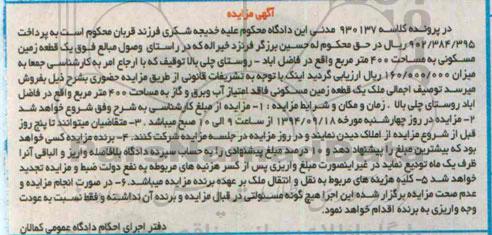 آگهی مزایده
در پرونده کلاسه ۹۳۰۱۳۷ مدنی این دادگاه محکوم علیه خدیجه شکری فرزند قربان محکوم است به پرداخت
۹۰۲/۳۸۴/۳۹۵ ریال در حق محکوم له حسین برزگر فرزند خیراله که در راستای وصول مبالغ فوق یک قطعه زمین
مسکونی به مساحت ۴۰۰ متر مربع واقع در فاضل اباد - روستای چلی بالا توقیف که با ارجاع امر به کارشناسی جمعا به
میزان ۱۶۰/۰۰۰/۰۰۰ ریال ارزیابی گردید اینک با توجه به تشریفات قانونی از طریق مزایده حضوری بشرح ذیل بفروش
میرسد توصیف اجمالی ملک یک قطعه زمین مسکونی فاقد امتیاز آب وبرق و گاز به مساحت ۴۰۰ متر مربع واقع در فاضل
اباد روستای چلی بالا . زمان و مکان و شرایط مزایده : ۱- مزایده از مبلغ کارشناسی به شرح وفق شروع خواهد شد
۲- مزایده در روز چهارشنبه مورخه ۱۳۹۴/۰۹/۱۸ از ساعت ۹ الی ۱۰ صبح میباشد . ۳- متقاضیان میتوانند تا پنج روز
قبل از شروع مزایده از املاک دیدن نمایند و در روز مزایده در جلسه مزایده شرکت کنند. ۴- برنده مزایده کسی خواهد
بود که بیشترین مبلغ را پیشنهاد دهد و ۱۰ درصد مبلغ پیشنهادی را به حساب سپرده دادگاه بلافاصله واریز و الباقی آنرا
ظرف یک ماه تودیع نماید در غیر اینصورت مبلغ واریزی پس از کسر هزنیه های مربوطه به نفع دولت ضبط و مزایده تجدید
خواهد شد ۵- کلیه هزینه های مربوط به نقل و انتقال ملک بر عهده برنده مزایده میباشد.۶- در صورت انجام مزایده و
عدم صحت مزایده برگزار شده این اجرا هیچ گونه مسئولتی در قبال مزایده و برنده آن نداشته و فقط نسبت به عودت
وجه واریزی به برنده اقدام خواهد نمود.
دفتر اجرای احکام دادگاه عمومی کمالان